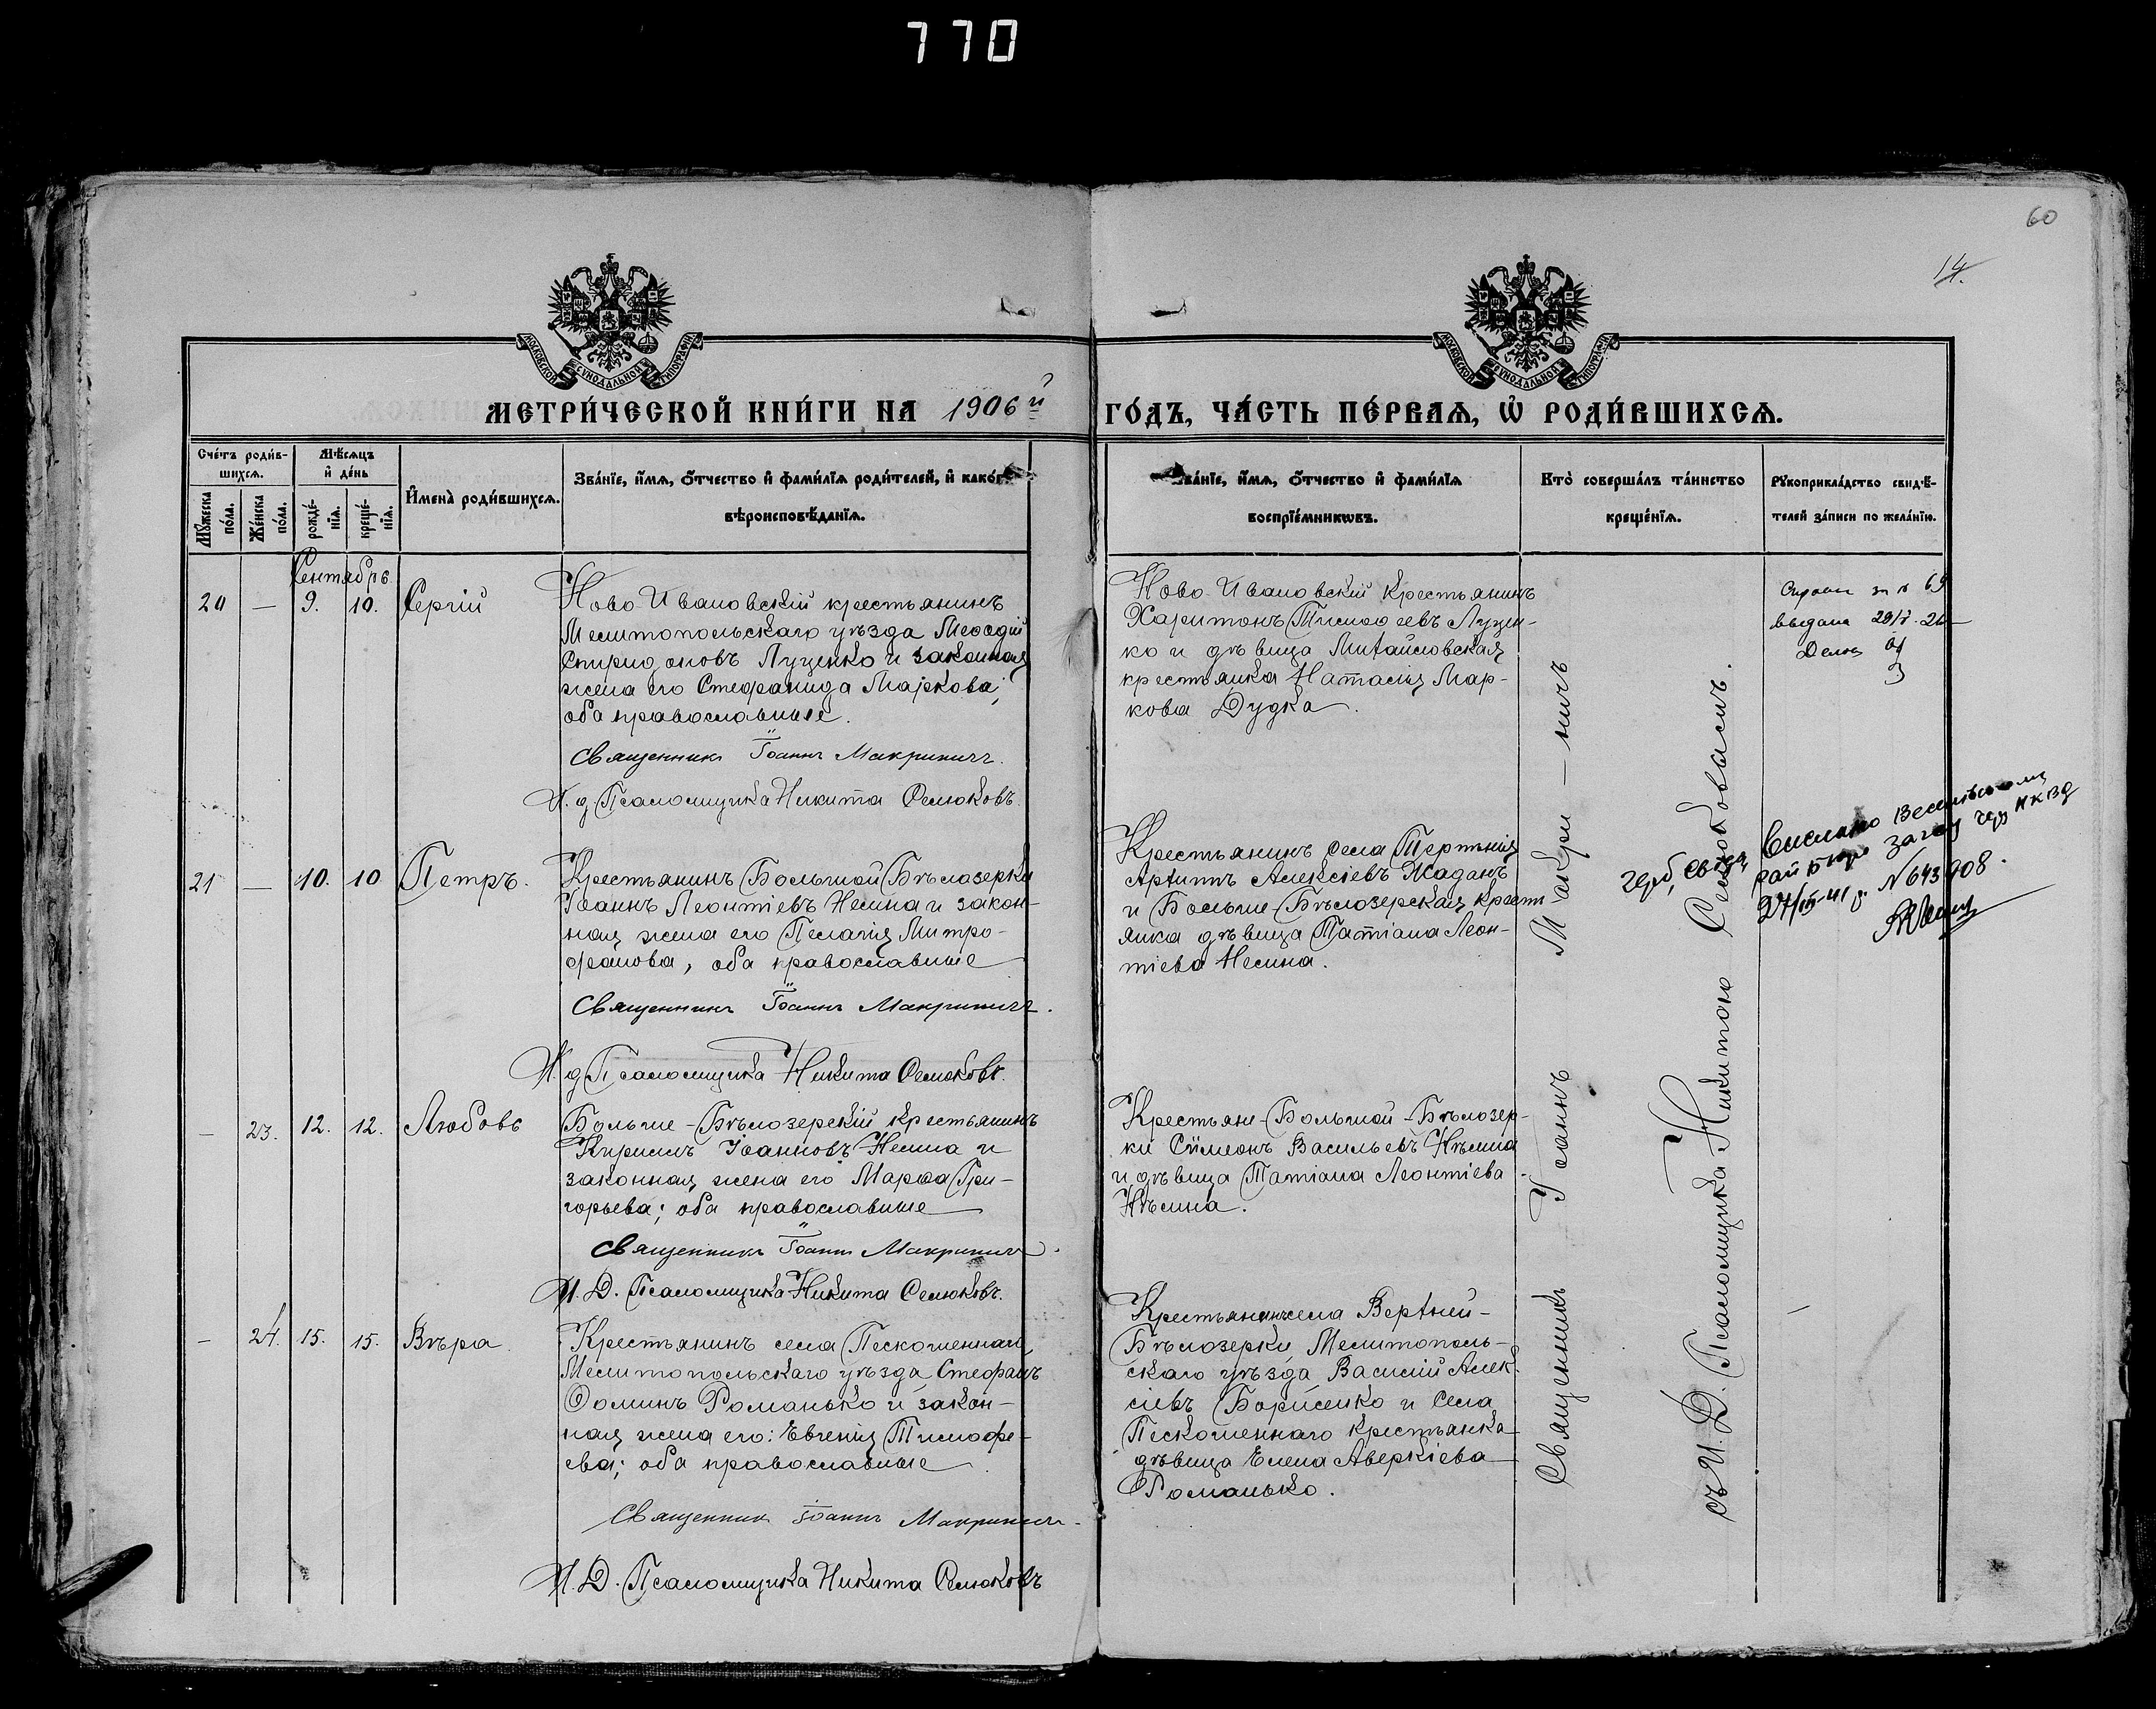 770
60
14.
МОСКОВСКОЙ СѴНОДАЛЬНОЙ ТИПОГРАФІИ
МОСКОВСКОЙ СѴНОДАЛЬНОЙ ТИПОГРАФІИ
МЕТРИ́ЧЕСКОЙ КНИ́ГИ НА 1906й ГО́ДЪ, ЧА́СТЬ ПЕ́РВАѦ, Ѡ҆ РОДИ́ВШИХСѦ.
Сче́тъ роди́в-
шихсѧ.
Мѣ́сѧцъ
и҆ де́нь
Мꙋ́жеска
по́ла.
Же́нска
по́ла.
рожде́-
нїѧ.
креще́-
нїѧ.
И҆мена̀ роди́вшихсѧ.
Зва́нїе, и҆́мѧ, ѻ҆́тчество и҆ фами́лїѧ роди́телей, и҆ како́гѡ
вѣроисповѣ́данїѧ.
Зва́нїе, и҆́мѧ, ѻ҆́тчество и҆ фами́лїѧ
воспрїе́мникѡвъ.
Кто̀ соверша́лъ та́инство
креще́нїѧ.
Рꙋкоприкла́дство свидѣ́-
телей за́писи по жела́нїю.
Сентябрь
20 — 9. 10. Сергій
Ново-Ивановскій крестьянинъ
Мелитопольскаго уѣзда Меѳодій
Спиридоновъ Луценко и законная
жена его Стефанида Маркова;
оба православные.
Священникъ Іоаннъ Макриничъ.
И. д. Псаломщика Никита Селюковъ.
Ново-Ивановскій Крестьянинъ
Харитонъ Тимоѳеевъ Луцен-
ко и дѣвица Михайловская
крестьянка Наталія Мар-
кова Дудка.
выдана
21 — 10. 10 Петръ.
Крестьянинъ Большой Бѣлозерки
Іоаннъ Леонтіевъ Несина и закон-
ная жена его Пелагія Митро-
фанова, оба православные
Священникъ Іоаннъ Макриничъ.
И. д. Псаломщика Никита Селюковъ.
Крестьянинъ села Терпѣнія
Архипъ Алексіевъ Жаданъ
и Больше-Бѣлозерская крест
янка дѣвица Татіана Леон-
тіева Несина.
Выслано
рай бюро загс НКВД
27/III-41 г. N 643908.
— 23. 12. 12. Любовь
Больше-Бѣлозерскій крестьянинъ
Кириллъ Іоанновъ Несина и
законная жена его Марѳа Гри-
горьева; оба православные
Священникъ Іоаннъ Макриничъ.
И. Д. Псаломщика Никита Селюковъ.
Крестьяне Большой-Бѣлозер-
ки Сѵмеонъ Васильевъ Нѣсина
и дѣвица Татіана Леонтіева
Нѣсина.
— 24. 15. 15. Вѣра.
Крестьянинъ села Пескошеннаго
Мелитопольскаго уѣзда Стефанъ
Ѳоминъ Романько и закон-
ная жена его: Евгенія Тимофе-
ева; оба православные
Священникъ Іоаннъ Макриничъ.
И. Д. Псаломщика Никита Селюковъ
Крестьянинъ села Верхней-
Бѣлозерки, Мелитополь-
скаго уѣзда Василій Алек-
сіевъ Борисенко и Села
Пескошеннаго крестьянка
дѣвица Елена Аверкіева
Романько.
Священникъ Іоаннъ Макри — ничъ
съ И. Д. Псаломщика Никитою Селюковымъ.